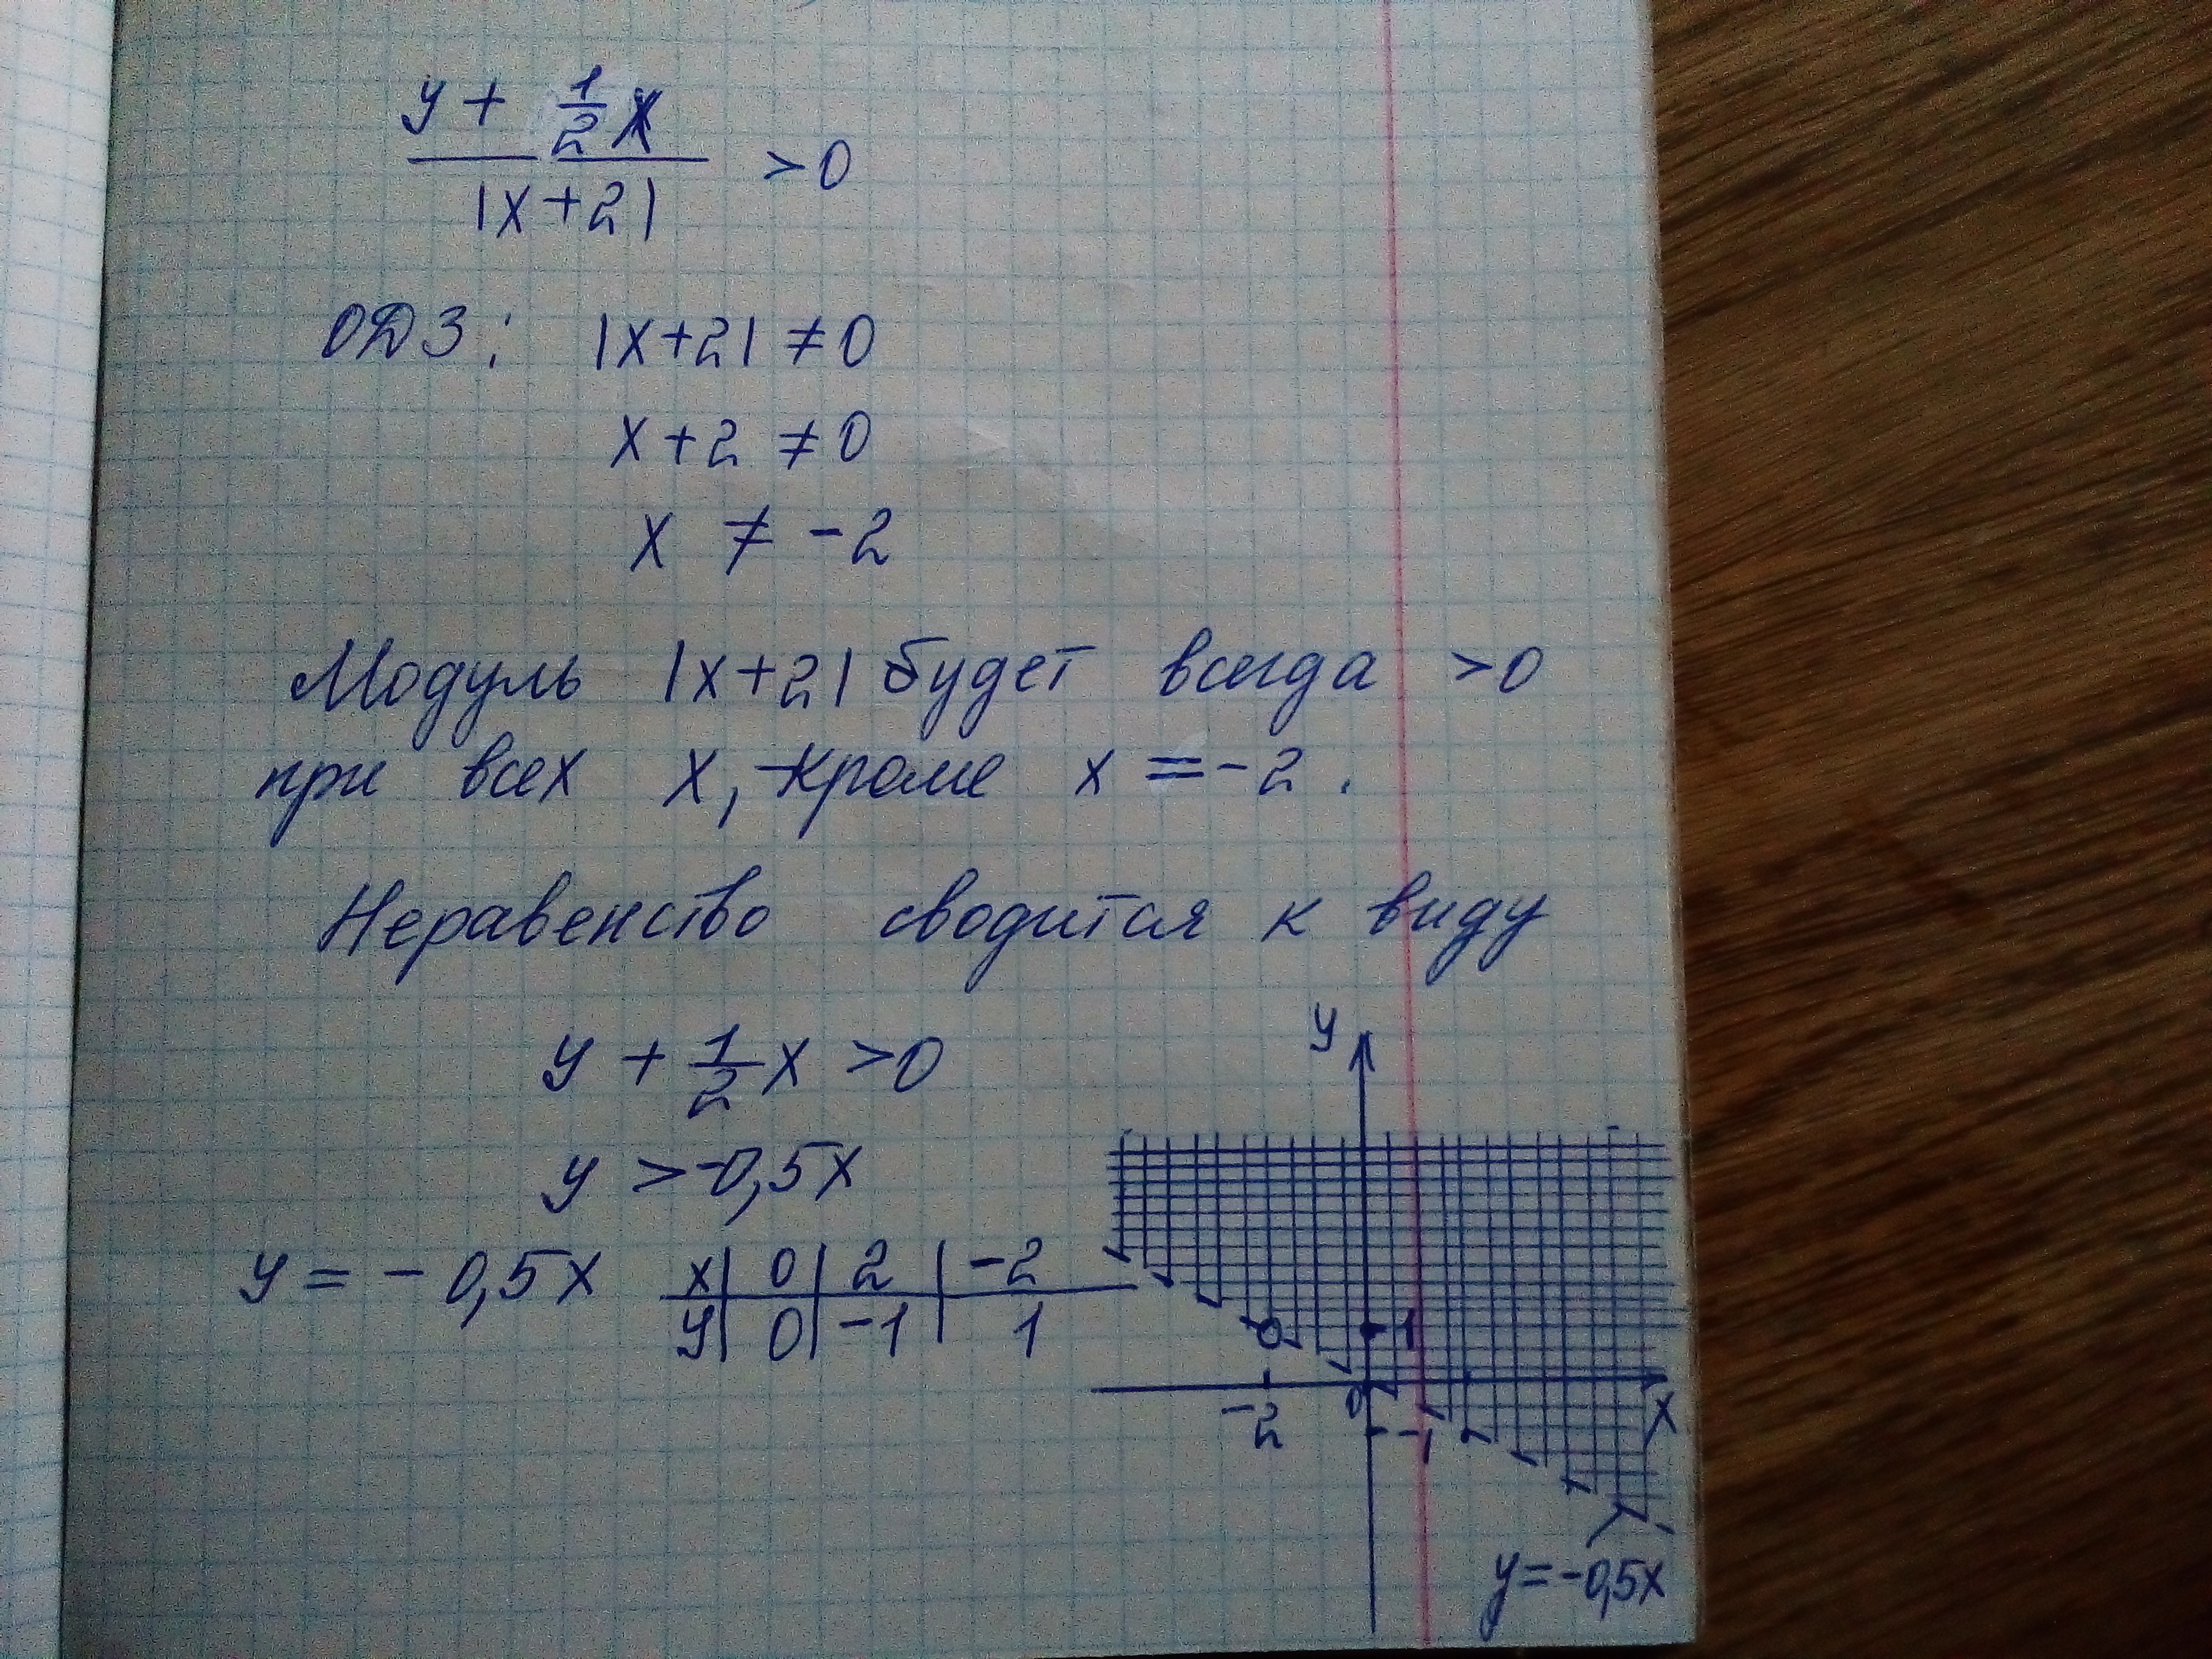 y + 1/2 x
———— > 0
|x+2|
ОДЗ: |x+2| ≠ 0
x + 2 ≠ 0
x ≠ -2
Модуль |x+2| будет всегда >0
при всех x, кроме x = -2.
Неравенство сводится к виду
y + 1/2 x > 0
y > -0,5x
y = -0,5x
x | 0 | 2 | -2
y | 0 | -1 | 1
y
1
-2 0 2 x
-1
y = -0,5x